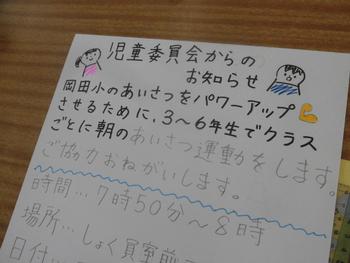 児童委員会からの
お知らせ
岡田小のあいさつをパワーアップ
させるために、3～6年生でクラス
ごとに朝のあいさつ運動をします。
ご協力おねがいします。
時間…7時50分～8時
場所…しょく員室前
日付…